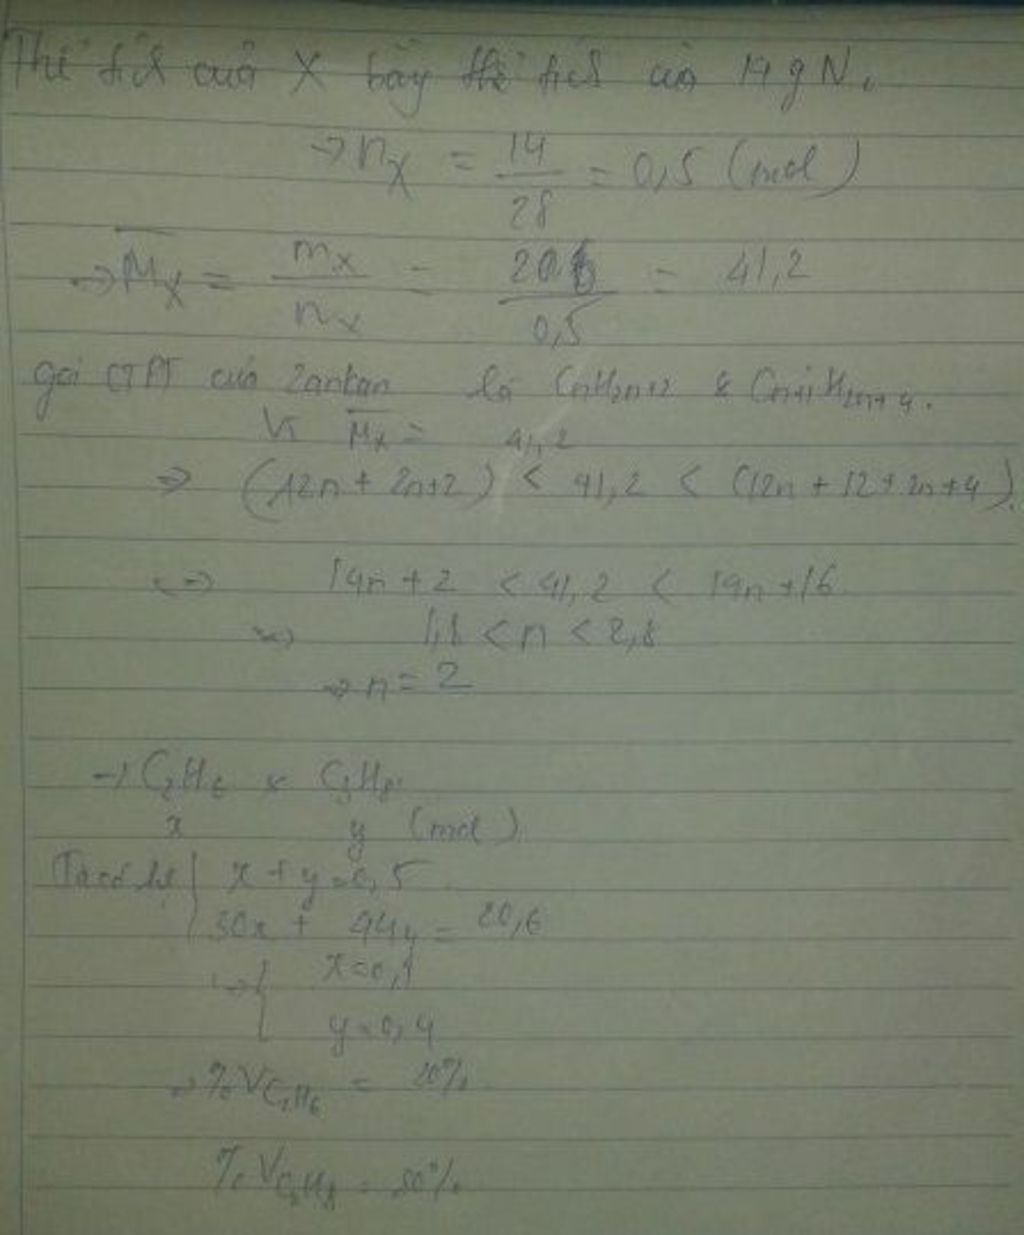 Thể tích của X bằg thể tích của 14 g N₂
→ nX = 14/28 = 0,5 (mol)
→ M̅X = mX/nX = 20,6/0,5 = 41,2
gọi CTPT của 2ankan là CnH2n+2 & Cn+1H2n+4.
Vì M̅X = 41,2
⇒ (12n + 2n+2) < 41,2 < (12n + 12 + 2n+4).
⇔ 14n + 2 < 41,2 < 14n + 16
⇔ 1,8 < n < 2,8
→ n = 2
→ C₂H₆ & C₃H₈
x y (mol)
Ta có hệ { x + y = 0,5
30x + 44y = 20,6
⇔ { x = 0,1
y = 0,4
⇒ %VC₂H₆ = 20%
%VC₃H₈ = 80%